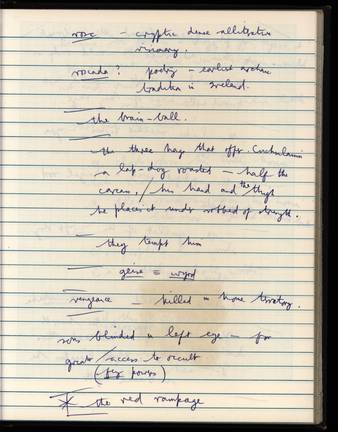 rosc – cryptic dense alliterative
visionary.
roscada? poetry – earliest archaic
tradition in Ireland.
the brain-ball.
the three hags that offer Cuchulainn
a lap-dog roasted – half the
carcass, / his hand and the thigh
he places it under robbed of strength.
they tempt him
geise = wyrd
vengeance – killed in home territory.
was blinded in left eye – for
greater / access to occult
(fey powers)
* the red rampage